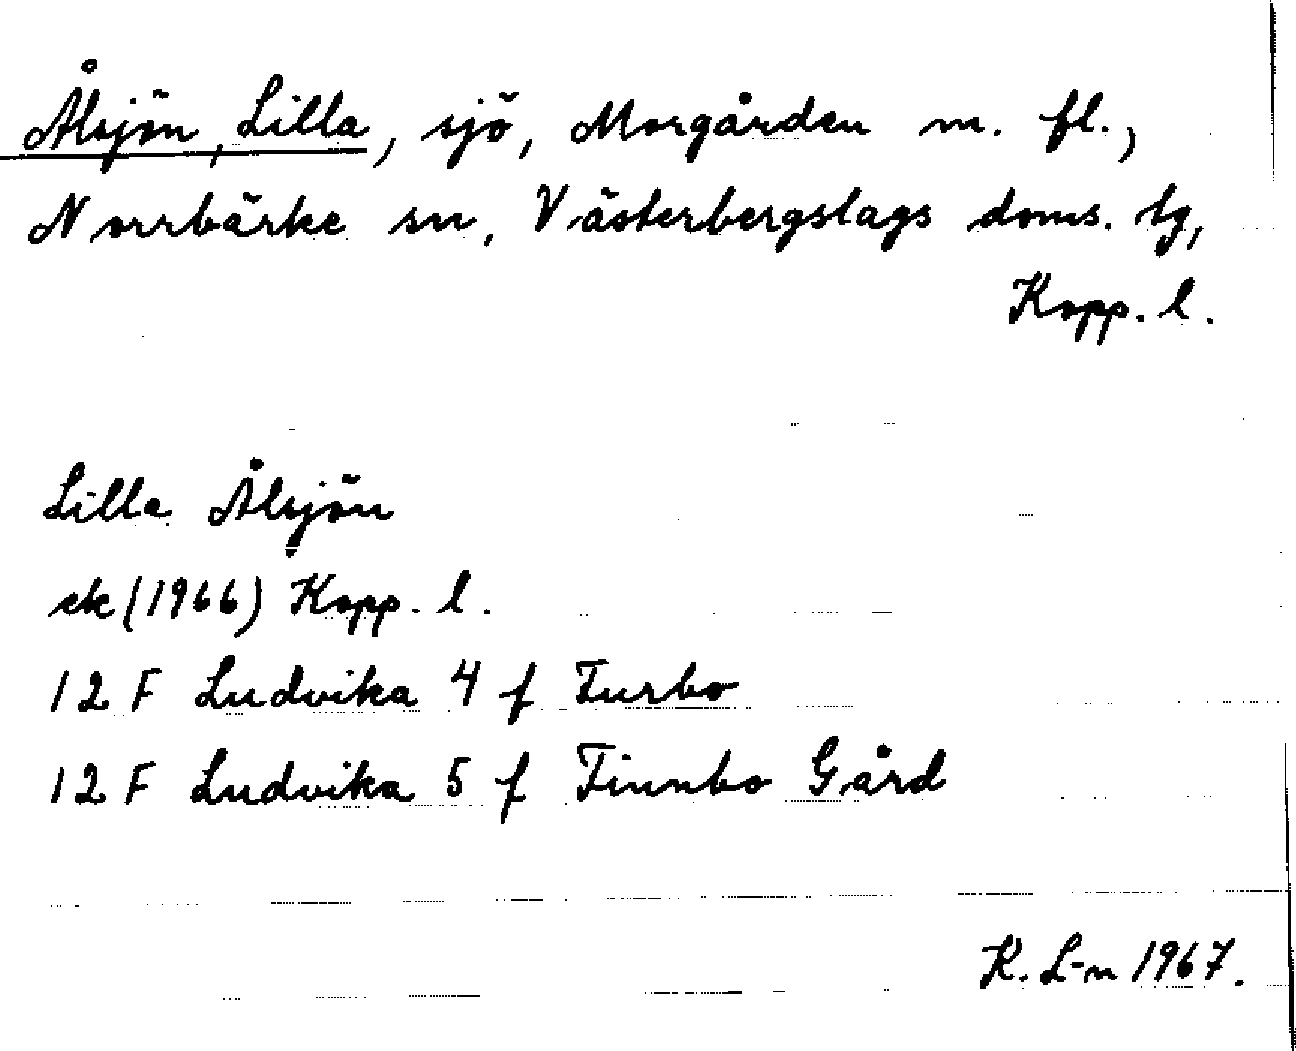 Ålsjön, Lilla, sjö, Morgården m. fl.,
Norrbärke sn, Västerbergslags doms. tg,
Kopp. l.
Lilla Ålsjön
ek (1966) Kopp. l.
12 F Ludvika 4 f Turbo
12 F Ludvika 5 f Finnbo Gård
K. L-n 1967.